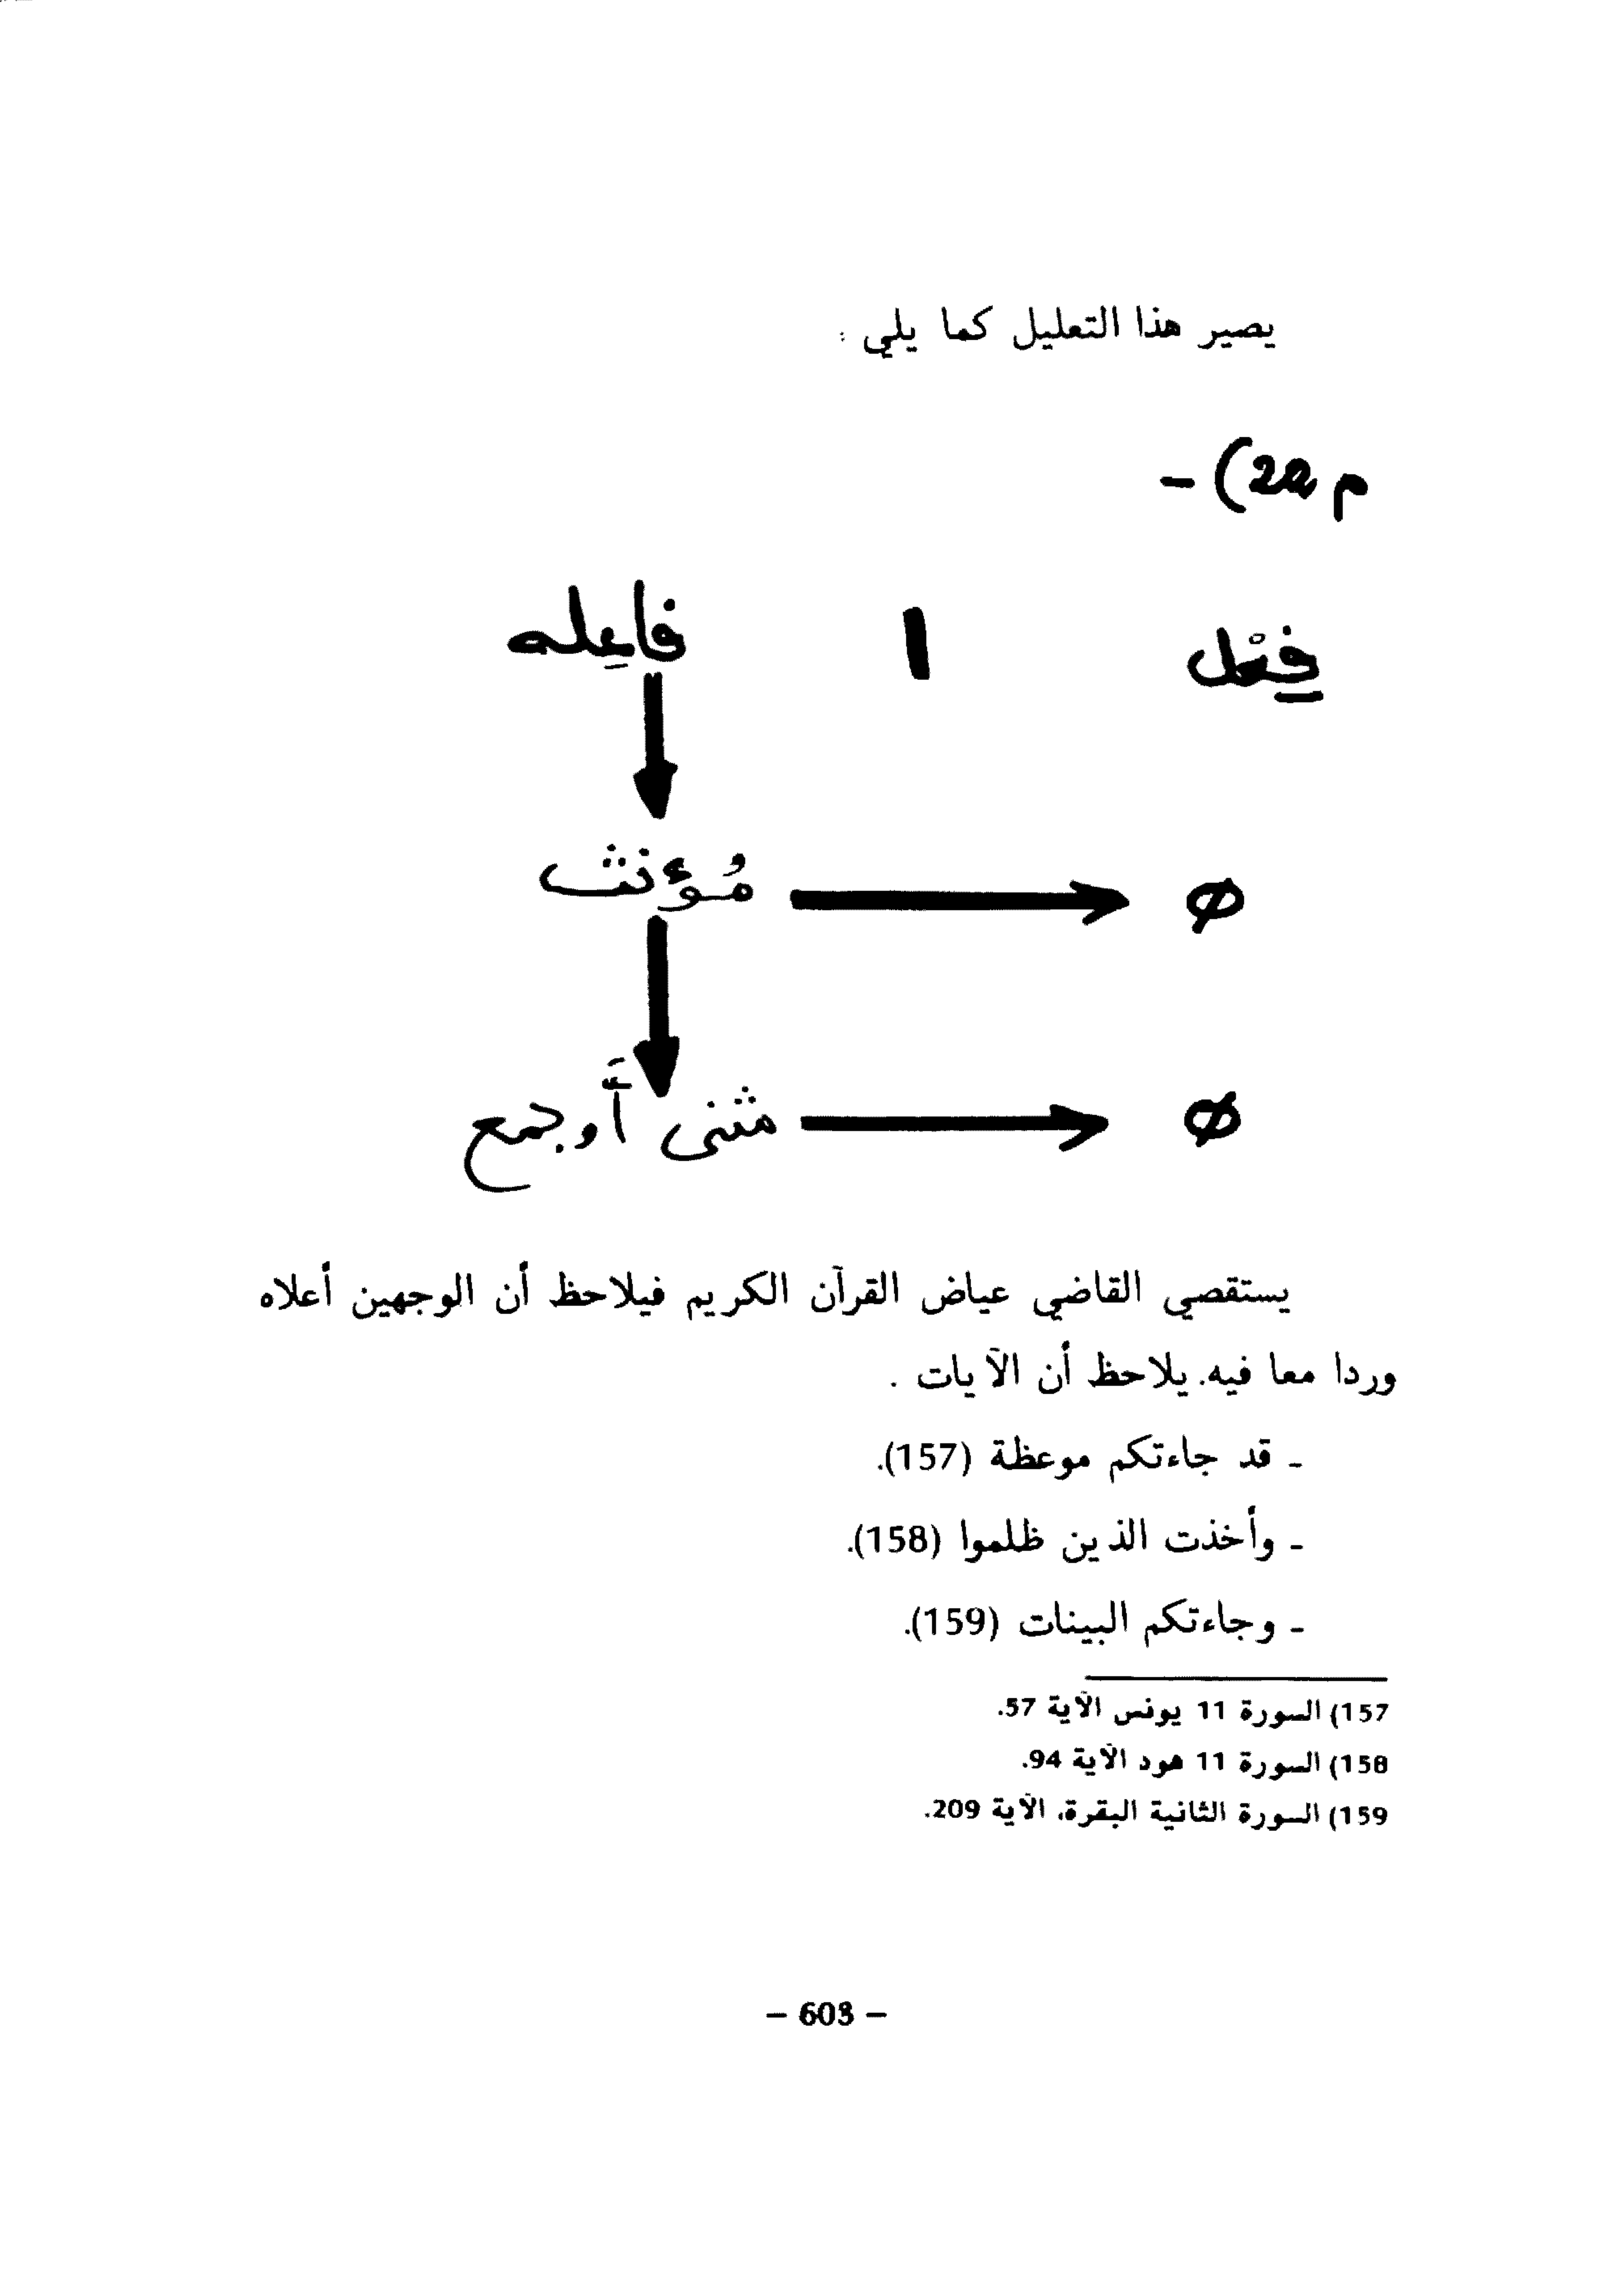 يصير هذا التعليل كما يلي :
م 2a) –
فِعْل ا فاعِله
مُؤنث → Ø
مثنى أَو جمع → Ø
يستقصي القاضي عياض القرآن الكريم فيلاحظ أن الوجهين أعلاه
وردا معا فيه. يلاحظ أن الآيات .
ـ قد جاءتكم موعظة (157).
ـ وأخذت الذين ظلموا (158).
ـ وجاءتكم البينات (159).
157) السورة 11 يونس الآية 57.
158) السورة 11 هود الآية 94.
159) السورة الثانية البقرة، الآية 209.
– 603 –